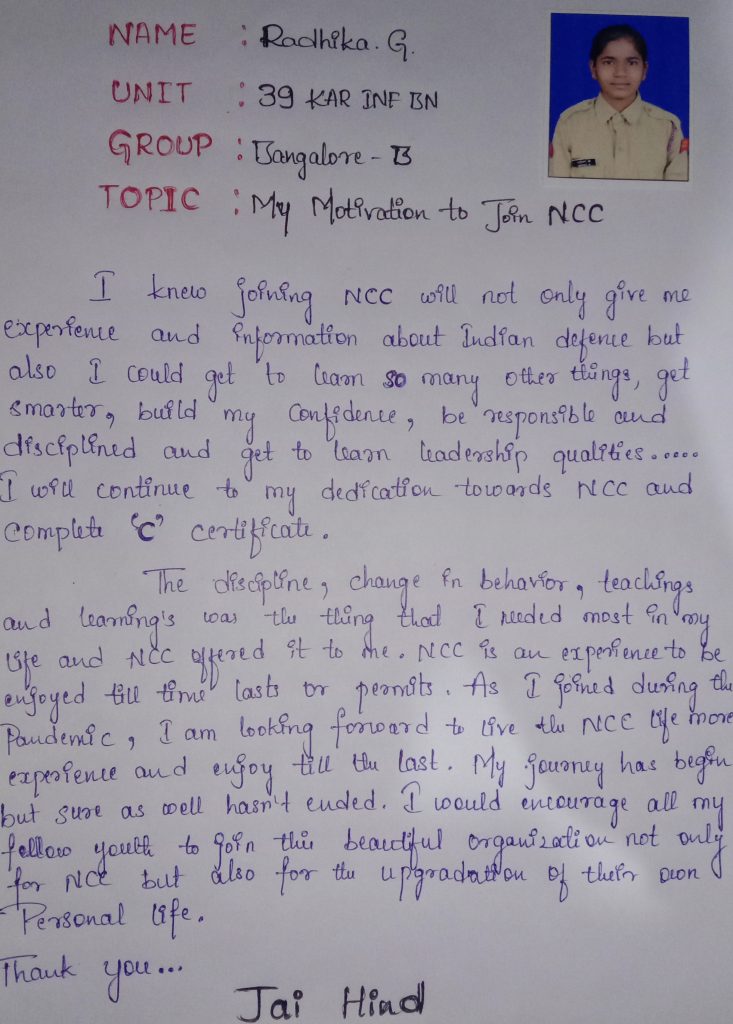 NAME : Radhika. G.
UNIT : 39 KAR INF BN
GROUP : Bangalore - B
TOPIC : My Motivation to Join NCC
I knew joining NCC will not only give me
experience and information about Indian defence but
also I could get to learn so many other things, get
smarter, build my confidence, be responsible and
disciplined and get to learn leadership qualities.....
I will continue to my dedication towards NCC and
complete "C" certificate.
The discipline, change in behavior, teachings
and learning's was the thing that I needed most in my
life and NCC offered it to me. NCC is an experience to be
enjoyed till time lasts or permits. As I joined during the
Pandemic, I am looking forward to live the NCC life more
experience and enjoy till the last. My journey has begin
but sure as well hasn't ended. I would encourage all my
fellow youth to join this beautiful organization not only
for NCC but also for the upgradation of their own
Personal life.
Thank you...
Jai Hind